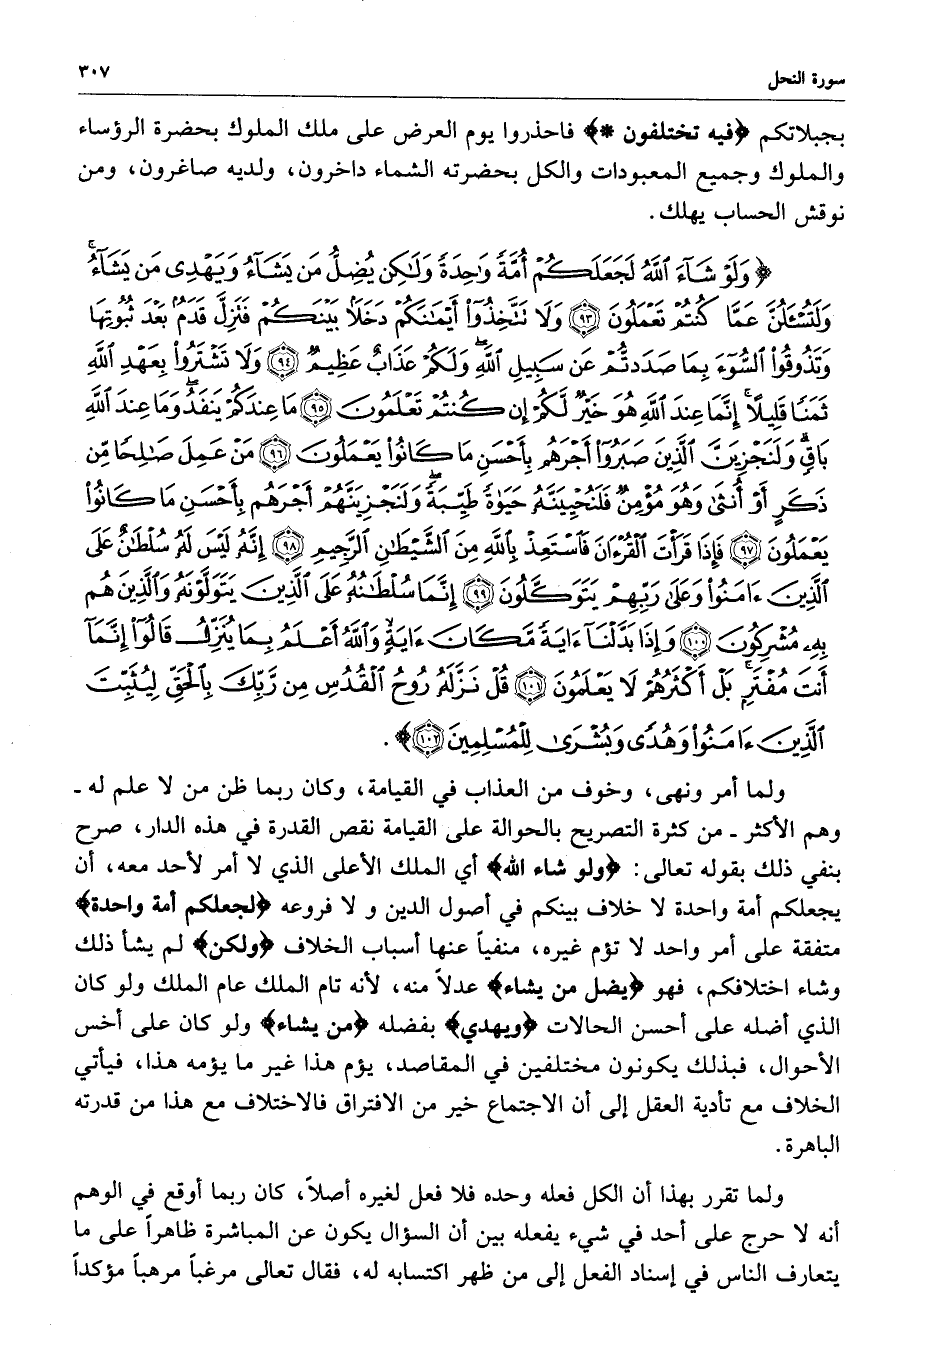 سورة النحل ٣٠٧
بجبلاتكم ﴿فيه تختلفون *﴾ فاحذروا يوم العرض على ملك الملوك بحضرة الرؤساء
والملوك وجميع المعبودات والكل بحضرته الشماء داخرون، ولديه صاغرون، ومن
نوقش الحساب يهلك.
﴿وَلَوْ شَآءَ ٱللَّهُ لَجَعَلَكُمْ أُمَّةً وَٰحِدَةً وَلَٰكِن يُضِلُّ مَن يَشَآءُ وَيَهْدِى مَن يَشَآءُ ۚ
وَلَتُسْـَٔلُنَّ عَمَّا كُنتُمْ تَعْمَلُونَ ﴿٩٣﴾ وَلَا تَتَّخِذُوٓا۟ أَيْمَٰنَكُمْ دَخَلًۢا بَيْنَكُمْ فَتَزِلَّ قَدَمٌۢ بَعْدَ ثُبُوتِهَا
وَتَذُوقُوا۟ ٱلسُّوٓءَ بِمَا صَدَدتُّمْ عَن سَبِيلِ ٱللَّهِ ۖ وَلَكُمْ عَذَابٌ عَظِيمٌ ﴿٩٤﴾ وَلَا تَشْتَرُوا۟ بِعَهْدِ ٱللَّهِ
ثَمَنًا قَلِيلًا ۚ إِنَّمَا عِندَ ٱللَّهِ هُوَ خَيْرٌ لَّكُمْ إِن كُنتُمْ تَعْلَمُونَ ﴿٩٥﴾ مَا عِندَكُمْ يَنفَدُ ۖ وَمَا عِندَ ٱللَّهِ
بَاقٍ ۗ وَلَنَجْزِيَنَّ ٱلَّذِينَ صَبَرُوٓا۟ أَجْرَهُم بِأَحْسَنِ مَا كَانُوا۟ يَعْمَلُونَ ﴿٩٦﴾ مَنْ عَمِلَ صَٰلِحًا مِّن
ذَكَرٍ أَوْ أُنثَىٰ وَهُوَ مُؤْمِنٌ فَلَنُحْيِيَنَّهُۥ حَيَوٰةً طَيِّبَةً ۖ وَلَنَجْزِيَنَّهُمْ أَجْرَهُم بِأَحْسَنِ مَا كَانُوا۟
يَعْمَلُونَ ﴿٩٧﴾ فَإِذَا قَرَأْتَ ٱلْقُرْءَانَ فَٱسْتَعِذْ بِٱللَّهِ مِنَ ٱلشَّيْطَٰنِ ٱلرَّجِيمِ ﴿٩٨﴾ إِنَّهُۥ لَيْسَ لَهُۥ سُلْطَٰنٌ عَلَى
ٱلَّذِينَ ءَامَنُوا۟ وَعَلَىٰ رَبِّهِمْ يَتَوَكَّلُونَ ﴿٩٩﴾ إِنَّمَا سُلْطَٰنُهُۥ عَلَى ٱلَّذِينَ يَتَوَلَّوْنَهُۥ وَٱلَّذِينَ هُم
بِهِۦ مُشْرِكُونَ ﴿١٠٠﴾ وَإِذَا بَدَّلْنَآ ءَايَةً مَّكَانَ ءَايَةٍ ۙ وَٱللَّهُ أَعْلَمُ بِمَا يُنَزِّلُ قَالُوٓا۟ إِنَّمَآ
أَنتَ مُفْتَرٍۭ ۚ بَلْ أَكْثَرُهُمْ لَا يَعْلَمُونَ ﴿١٠١﴾ قُلْ نَزَّلَهُۥ رُوحُ ٱلْقُدُسِ مِن رَّبِّكَ بِٱلْحَقِّ لِيُثَبِّتَ
ٱلَّذِينَ ءَامَنُوا۟ وَهُدًى وَبُشْرَىٰ لِلْمُسْلِمِينَ ﴿١٠٢﴾﴾.
ولما أمر ونهى، وخوف من العذاب في القيامة، وكان ربما ظن من لا علم له ـ
وهم الأكثر ـ من كثرة التصريح بالحوالة على القيامة نقص القدرة في هذه الدار، صرح
بنفي ذلك بقوله تعالى: ﴿ولو شاء الله﴾ أي الملك الأعلى الذي لا أمر لأحد معه، أن
يجعلكم أمة واحدة لا خلاف بينكم في أصول الدين و لا فروعه ﴿لجعلكم أمة واحدة﴾
متفقة على أمر واحد لا تؤم غيره، منفياً عنها أسباب الخلاف ﴿ولكن﴾ لم يشأ ذلك
وشاء اختلافكم، فهو ﴿يضل من يشاء﴾ عدلاً منه، لأنه تام الملك عام الملك ولو كان
الذي أضله على أحسن الحالات ﴿ويهدي﴾ بفضله ﴿من يشاء﴾ ولو كان على أخس
الأحوال، فبذلك يكونون مختلفين في المقاصد، يؤم هذا غير ما يؤمه هذا، فيأتي
الخلاف مع تأدية العقل إلى أن الاجتماع خير من الافتراق فالاختلاف مع هذا من قدرته
الباهرة.
ولما تقرر بهذا أن الكل فعله وحده فلا فعل لغيره أصلاً، كان ربما أوقع في الوهم
أنه لا حرج على أحد في شيء يفعله بين أن السؤال يكون عن المباشرة ظاهراً على ما
يتعارف الناس في إسناد الفعل إلى من ظهر اكتسابه له، فقال تعالى مرغباً مرهباً مؤكداً